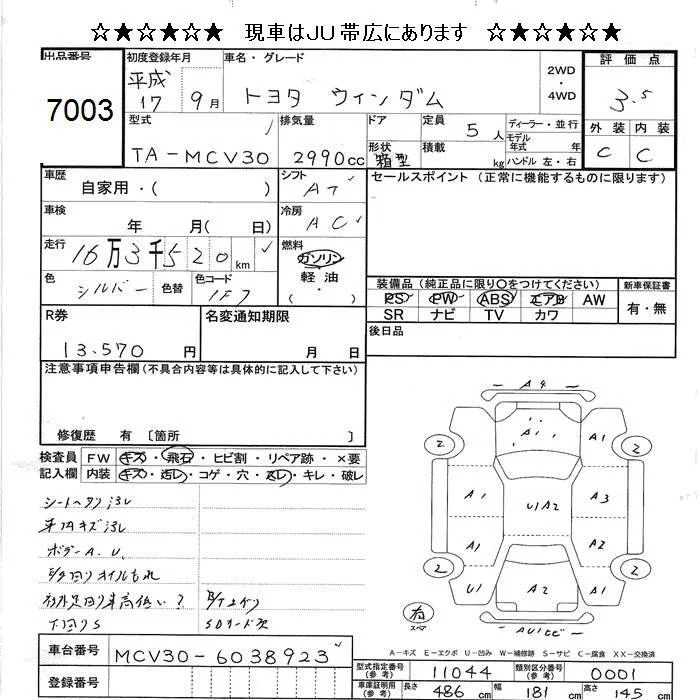 ☆★☆★☆★ 現車はJU帯広にあります ☆★☆★☆★
出品番号 初度登録年月 車名・グレード 2WD 4WD 評価点
7003 平成17 9月 トヨタ ウィンダム 3.5
型式 排気量 ドア 定員 5人 ディーラー・並行 外装 内装
モデル年式 年
TA-MCV30 2990cc 形状 箱型 積載 kg ハンドル 左・右 C C
車歴 自家用・( ) シフト AT セールスポイント (正常に機能するものに限ります)
車検 年 月( 日) 冷房 AC
走行 16万3千520km 燃料 ガソリン・軽油・( )
色 シルバー 色替 色コード 1F7
装備品(純正品に限り○をつけてください) 新車保証書
PS PW ABS エアB AW 有・無
SR ナビ TV カワ
R券 13.570円 名変通知期限 月 日 後日品
注意事項申告欄(不具合内容等は具体的に記入して下さい)
修復歴 有 〔箇所 〕
検査員記入欄 FW キズ・飛石・ヒビ割・リペア跡・×要
内装 キズ・汚レ・コゲ・穴・スレ・キレ・破レ
シートヘタリ
ボデーA.U.
オイルもれ
下回りS SDカード欠
A4
A1 A1
2 2
A1 A3
U1A2
A1 A2
2 2
U1 A2 A1
有 スペア
AU1ビ
A-キズ E-エクボ U-凹み W-補修跡 S-サビ C-腐食 XX-交換済
車台番号 MCV30-6038923
登録番号
型式指定番号(参考) 11044 類別区分番号(参考) 0001
車庫証明用(参考) 長さ 486cm 幅 181cm 高さ 145cm